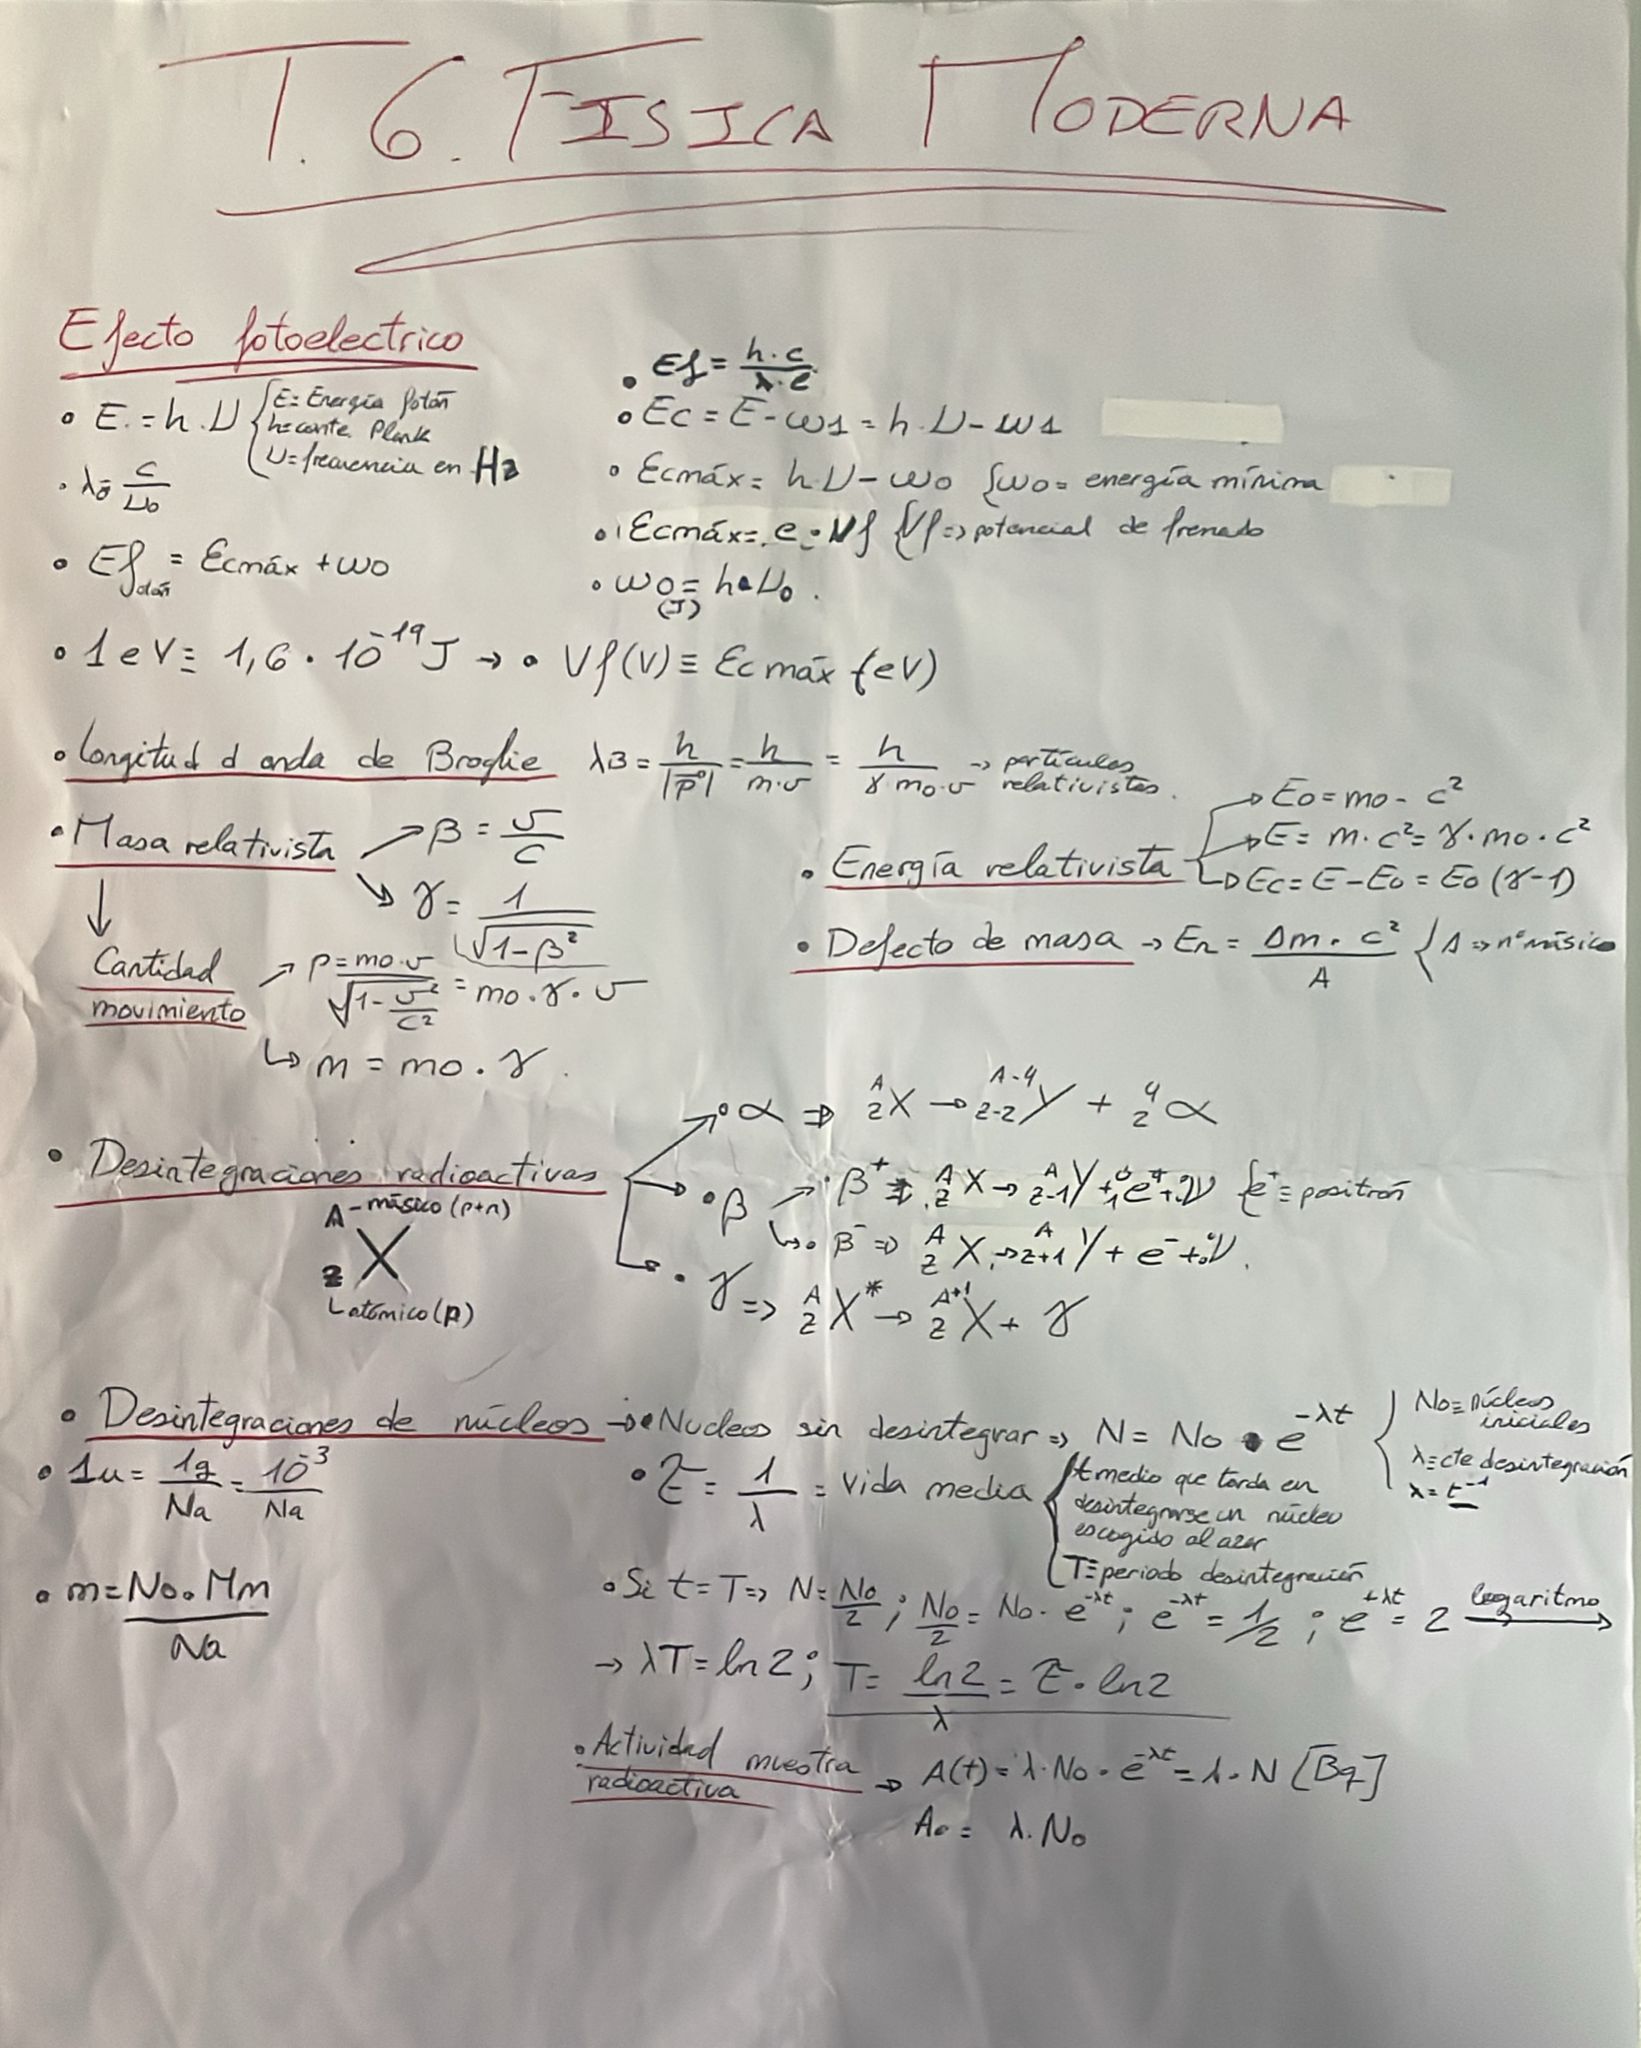 T. 6. FISICA MODERNA
Efecto fotoelectrico
• E = h . ν { E = Energía fotón
h = conte. Plank
ν = frecuencia en Hz
• λo = c / νo
• Ef otón = Ecmáx + wo
• Ef = h · c / λ · e
• Ec = E - w1 = h . ν - w1
• Ecmáx = h . ν - wo { wo = energía mínima
• Ecmáx = e · Vf { Vf => potencial de frenado
• wo (J) = h · νo .
• 1 eV ≡ 1,6 · 10^-19 J → • Vf (V) ≡ Ecmáx (eV)
• Longitud d onda de Broglie λB = h / |p→| = h / m·v = h / γ·mo·v → partículas relativistas.
• Masa relativista
↗ β = v / c
↘ γ = 1 / √(1 - β²)
↓
Cantidad movimiento
↗ p = mo·v / √(1 - v²/c²) = mo · γ · v
↳ m = mo . γ .
• Energía relativista
→ Eo = mo - c²
→ E = m · c² = γ · mo · c²
→ Ec = E - Eo = Eo (γ - 1)
• Defecto de masa → En = Δm · c² / A { A => nº másico
• Desintegraciones radioactivas
A - másico (p+n)
X
Z
↳ atómico (p)
• α => A Z X → A-4 Z-2 Y + 4 2 α
• β
↗ • β⁺ => A Z X → A Z-1 Y + 0 1 e⁺ + ν { e⁺ ≡ positrón
↳ • β⁻ => A Z X → A Z+1 Y + e⁻ + ν .
• γ => A Z X* → A+1 Z X + γ
• Desintegraciones de núcleos → • Nucleos sin desintegrar => N = No · e^-λt { No ≡ núcleos iniciales
λ ≡ cte desintegración
λ = t⁻¹
• 1u = 1g / Na = 10⁻³ / Na
• m = No · Mm / Na
• τ = 1 / λ = vida media { t medio que tarda en
desintegrarse un núcleo
escogido al azar
T ≡ periodo desintegración
• Si t = T => N = No / 2 ; No / 2 = No · e^-λt ; e^-λt = 1/2 ; e^+λt = 2 logaritmo →
→ λT = ln 2 ; T = ln 2 / λ = τ · ln 2
• Actividad muestra radioactiva → A(t) = λ · No · e^-λt = λ · N [Bq]
Ao = λ . No